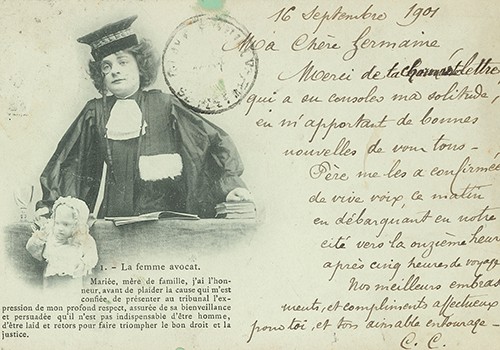 16 Septembre 1901
Ma Chère Germaine
Merci de ta charmante lettre,
qui a en consoles ma solitude,
en m'apportant de bonnes
nouvelles de vous tous-
Père me les a confirmées
de vive voix, ce matin
en débarquant en notre
cité vers la onzième heure
après cinq heures de voyage
Nos meilleurs embras
ments, et compliments affectueux
pour toi, et ton aimable entourage-
C. C.
1. - La femme avocat.
Mariée, mère de famille, j'ai l'hon-
neur, avant de plaider la cause qui m'est
confiée, de présenter au tribunal l'ex-
pression de mon profond respect, assurée de sa bienveillance
et persuadée qu'il n'est pas indispensable d'être homme,
d'être laid et retors pour faire triompher le bon droit et la
justice.